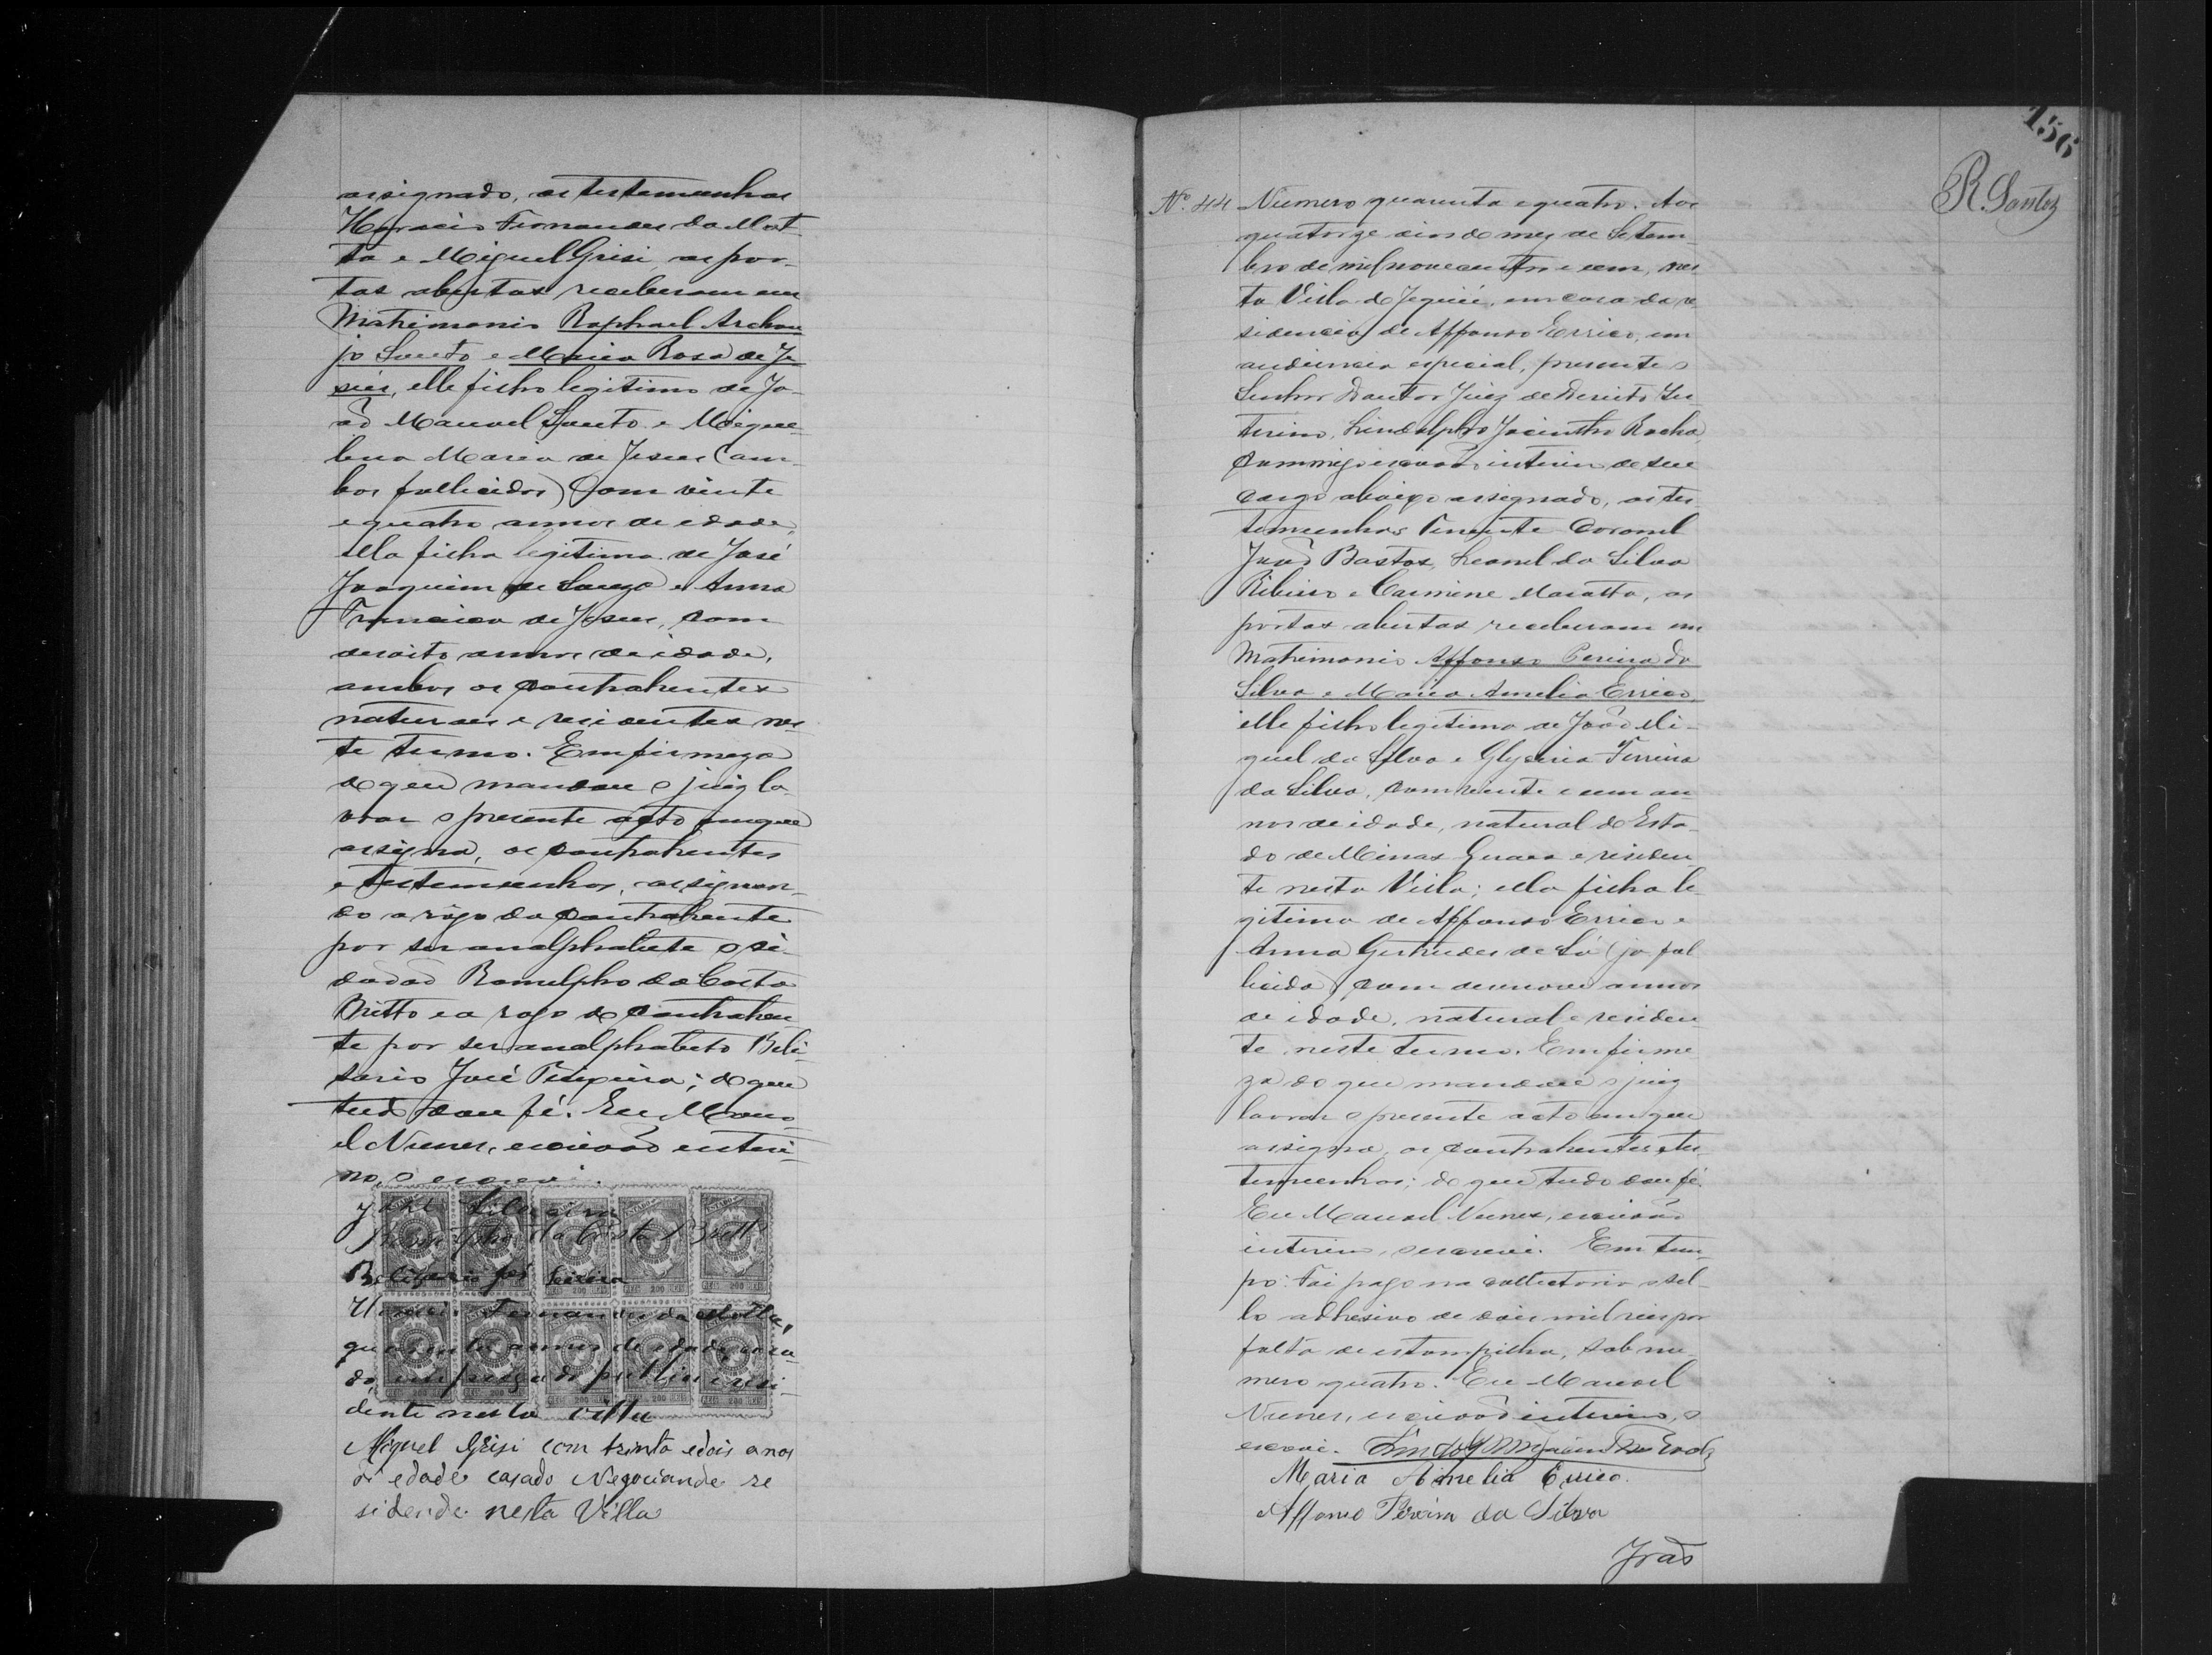 assignado, as testemunhas
Horacio Fernandes da Mot-
ta e Miguel Grisi, as por-
tas abertas receberam em
Matrimonio Raphael Archan
jo Souto e Maria Rosa de Je
sus, elle filho legitimo de Jo-
aõ Manoel Souto e Migue-
lina Maria de Jesus (am-
bos fallicidos) Com vinte
e quatro annos de edade,
ella filha legitima de José
Joaquim de Souza e Anna
Francisca de Jesus, com
desoito annos de idade,
ambos os contrahentes
naturaes e residentes nes-
te termo. Em firmeza
do que mandou o juiz la-
vrar o presente acto em que
assigna, os contrahentes
e testemunhas, assignan-
do a rôgo da contrahente
por ser analphabeta o si-
dadaõ Romulpho da Costa
Britto e a rogo do contrahen-
te por ser analphabeto Beli-
sario José Teixeira; do que
tudo dou fé. Eu Mano-
el Nunes, escrivaõ interi-
no, o escrevi.
Silveira
da Costa Britto
Belizario José
Horacio Fernandes da Motta,
quarenta annos de edade, casa-
do, empregado publico e resi-
dente nesta villa
Miguel Grisi com trinta e dois anos
di edade casado Negociande re
sidende nesta Villa
156
R. Santos
Nº. 44 Numero quarenta e quatro. Aos
quatorze dias do mez de Setem-
bro de mil novecentos e um, nes-
ta Villa de Jequié, em casa da re-
sidencia de Affonso Errico, em
audiencia especial, presente o
Senhor Doutor Juiz de Direito In-
terino, Lindolpho Jacintho Rocha,
commigo escrivaõ interino de seu
cargo abaixo assignado, as tes-
temunhas Tenente Coronel
Joaõ Bastos, Leonel da Silva
Ribeiro e Carmine Marotta, as
portas abertas receberam em
Matrimonio Affonso Pereira da
Silva e Maria Amelia Errico,
elle filho legitimo de Joaõ Mi-
guel da Silva e Glyceria Ferreira
da Silva, com vinte e um an-
nos de idade, natural do Esta-
do de Minas Geraes e residen-
te nesta Villa; ella filha le-
gitima de Affonso Errico e
Anna Gertrudes de Sá (ja fal
licida) com desenove annos
de idade, natural e residen-
te neste termo. Em firme-
za do que mandou o juiz
lavrar o presente acto em que
assigna, os contrahentes e tes-
temunhas; do que tudo dou fé.
Eu Manoel Nunes, escrivaõ
interino, o escrevi. Em tem-
po: Foi pago na collectoria o sel-
lo adhesivo de dois mil reis por
falta de estampilha, sob nu-
mero quatro. Eu Manoel
Nunes, escrivaõ interino, o
escrevi.
Maria Amelia Errico.
Affonso Pereira da Silva
Joaõ